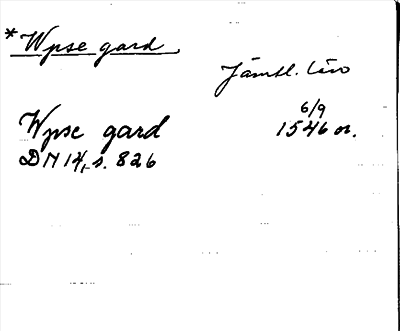 *Wpse gard
Jämtl. län
6/9
Wpse gard 1546 or.
DN 14, s. 826